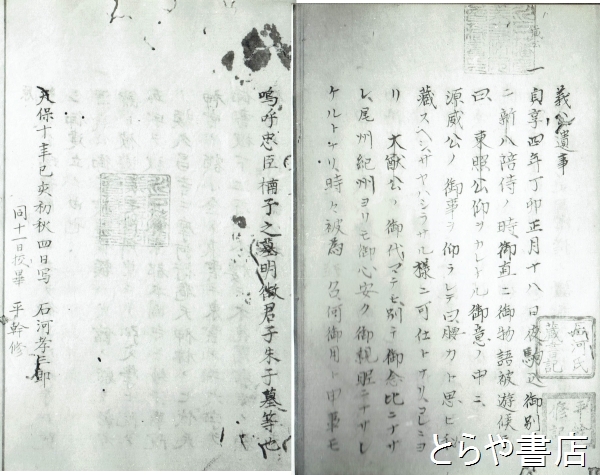 義公遺事
一 貞享四年丁卯正月十八日夜駒込御別
ニ新八陪侍ノ時御直ニ御物語被遊候
曰ク東照公仰ヲカレトル御意ノ中ニ
源威公ノ御事ヲ仰ラレテ曰腰カト思ヒ
蔵スヘシサヤハシラサル様ニ可仕トナリコレニヨ
リ大猷公ノ御代マテモ別テ御念比ニナサ
レ尾州紀州ヨリモ御心安ク御親眤ニナサレ
ケルトナリ時々被為召何御用ト申事モ
嗚呼忠臣楠子之墓明徴君子朱子墓等也
天保十年己亥初秋四日写 石河孝三郎
同十一日校畢 平幹修
とらや書店